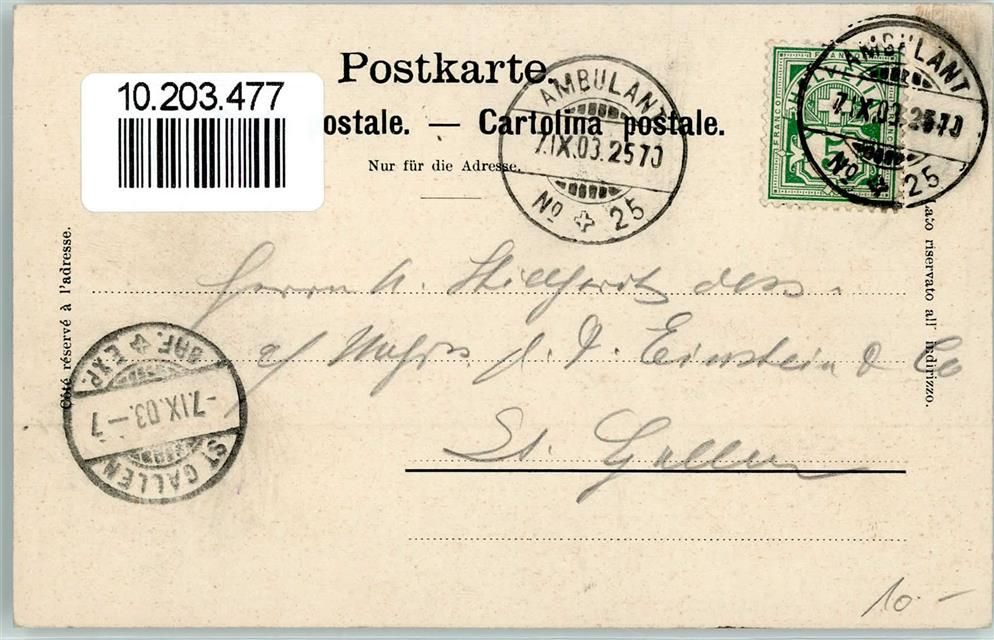 10.203.477
Postkarte.
ostale. — Cartolina postale.
Nur für die Adresse.
AMBULANT
7.IX.03.2570
No 25
HELVETIA
FRANCO FRANCO
5
AMBULANT
7.IX.03.2570
No 25
Côté réservé à l'adresse.
Lato riservato all' indirizzo.
Herrn A.
c/ J. D. Einstein & Co
St. Gallen
BRF. EXP.
-7.IX.03.-7
ST. GALLEN
10.-